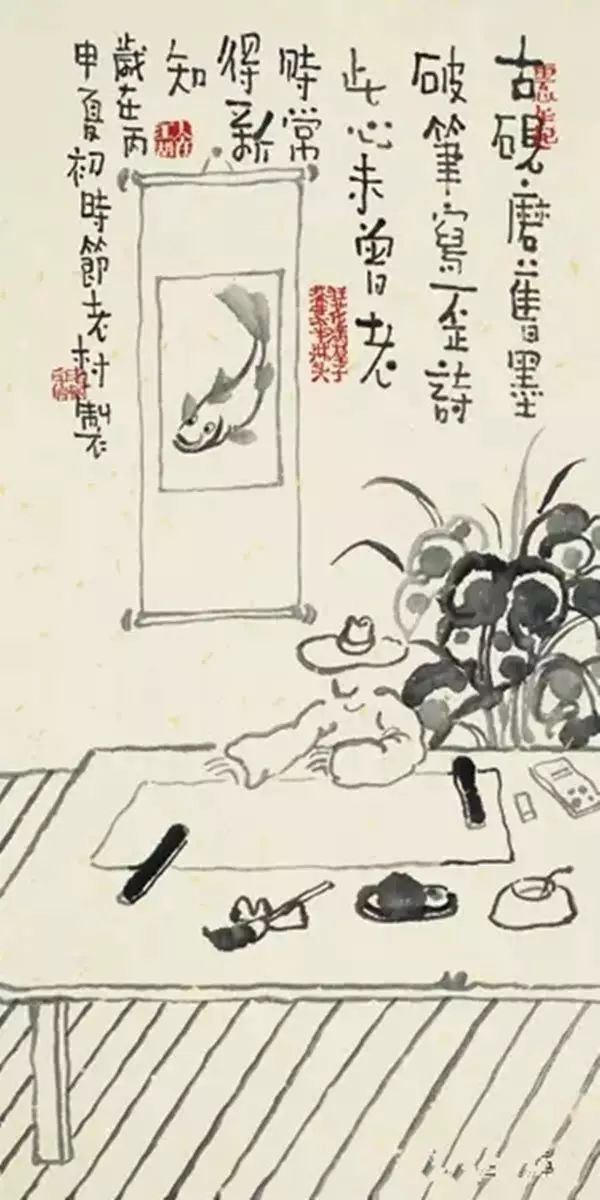 古硯磨舊墨
破筆寫歪詩
此心未曾老
時常
得新
知
歲在丙
申夏初時節老村製